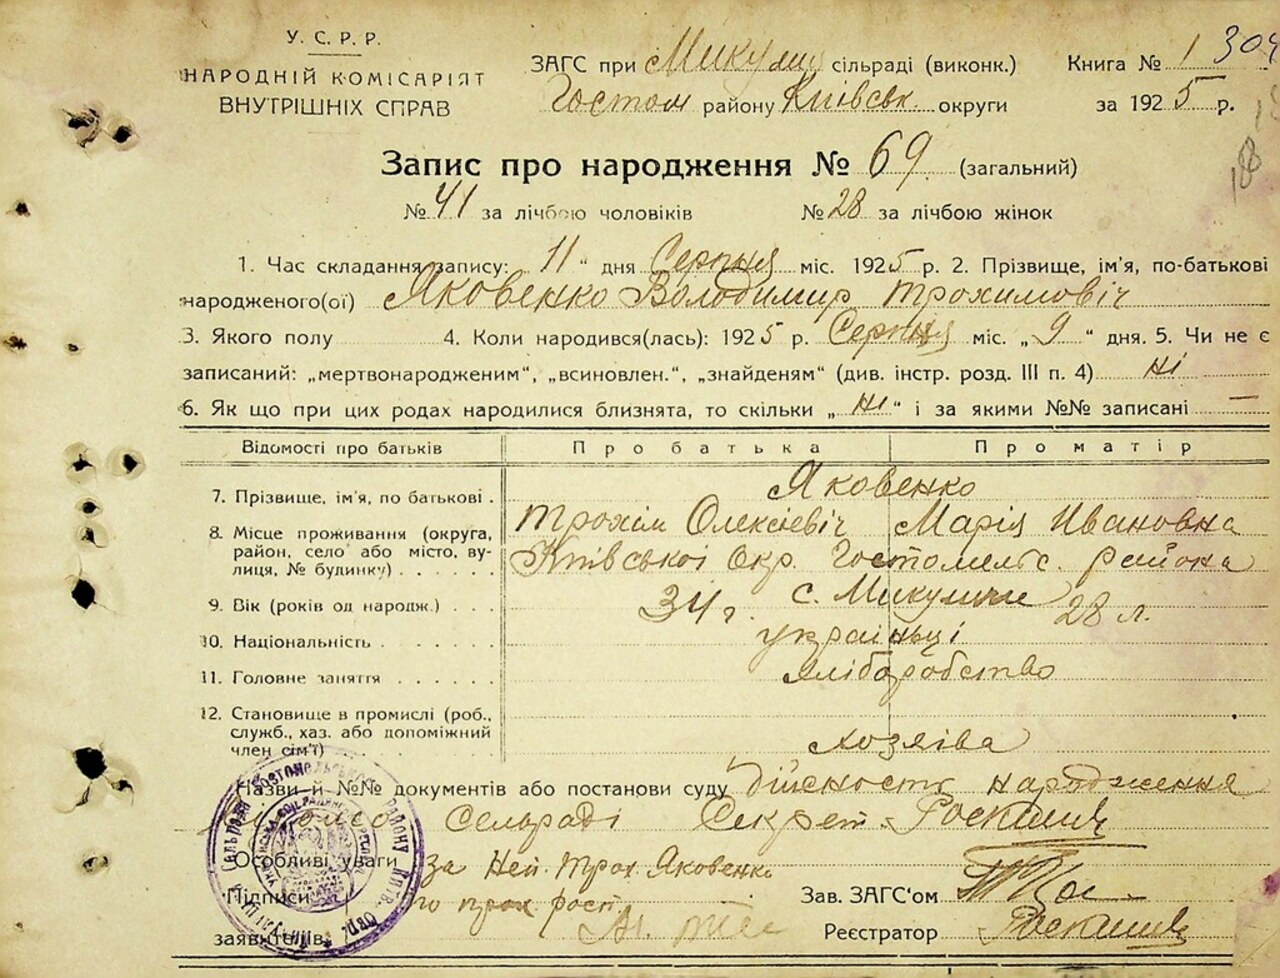 У. С. Р. Р.
НАРОДНІЙ КОМІСАРІЯТ
ВНУТРІШНІХ СПРАВ
ЗАГС при Микулич сільраді (виконк.) Книга № 1 304
Гостом району Київськ. округи за 1925 р.
188
Запис про народження № 69. (загальний)
№ 41 за лічбою чоловіків № 28 за лічбою жінок
1. Час складання запису: 11 " дня Серпня міс. 1925 р. 2. Прізвище, ім'я, по-батькові
народженого(ої) Яковенко Володимир Трохимовіч
3. Якого полу 4. Коли народився(лась): 1925 р. Серпня міс. „ 9 " дня. 5. Чи не є
записаний: „мертвонародженим", „всиновлен.", „знайденям" (див. інстр. розд. III п. 4) ні
6. Як що при цих родах народилися близнята, то скільки „ ні " і за якими №№ записані —
Відомості про батьків Про батька Про матір
7. Прізвище, ім'я, по батькові . Яковенко
Трохим Олексієвіч Марія Ивановна
8. Місце проживання (округа, район, село або місто, ву-
лиця, № будинку) . . . . . Київської Окр. Гостомельс. района
с. Микуличи
9. Вік (років од народж.) . . . 34 г. 28 л.
10. Національність . . . . . . українці
11. Головне заняття . . . . . . хліборобство
12. Становище в промислі (роб.,
служб., хаз. або допоміжний
член сім'ї) . . . . . . хозяїва
Назви й №№ документів або постанови суду дійсность народження
Сельраді Секрет.
Особливі уваги за Неп. Трох. Яковенко
Підписи
заявителів
Зав. ЗАГС'ом
Реєстратор